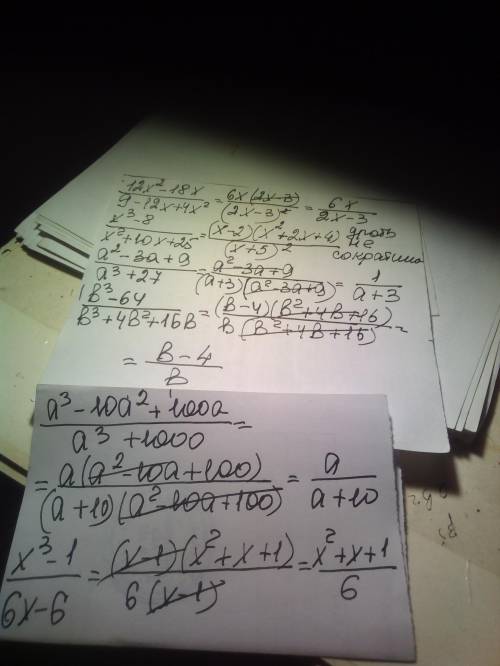 12x² - 18x / 9 - 12x + 4x² = 6x(2x-3) / (2x-3)² = 6x / 2x-3
x³ - 8 / x² + 10x + 25 = (x-2)(x² + 2x + 4) / (x+5)² дробь не сократима
a² - 3a + 9 / a³ + 27 = a² - 3a + 9 / (a+3)(a² - 3a + 9) = 1 / a+3
b³ - 64 / b³ + 4b² + 16b = (b-4)(b² + 4b + 16) / b(b² + 4b + 16) =
= b - 4 / b
a³ - 10a² + 100a / a³ + 1000 =
= a(a² - 10a + 100) / (a+10)(a² - 10a + 100) = a / a+10
x³ - 1 / 6x - 6 = (x-1)(x² + x + 1) / 6(x-1) = x² + x + 1 / 6